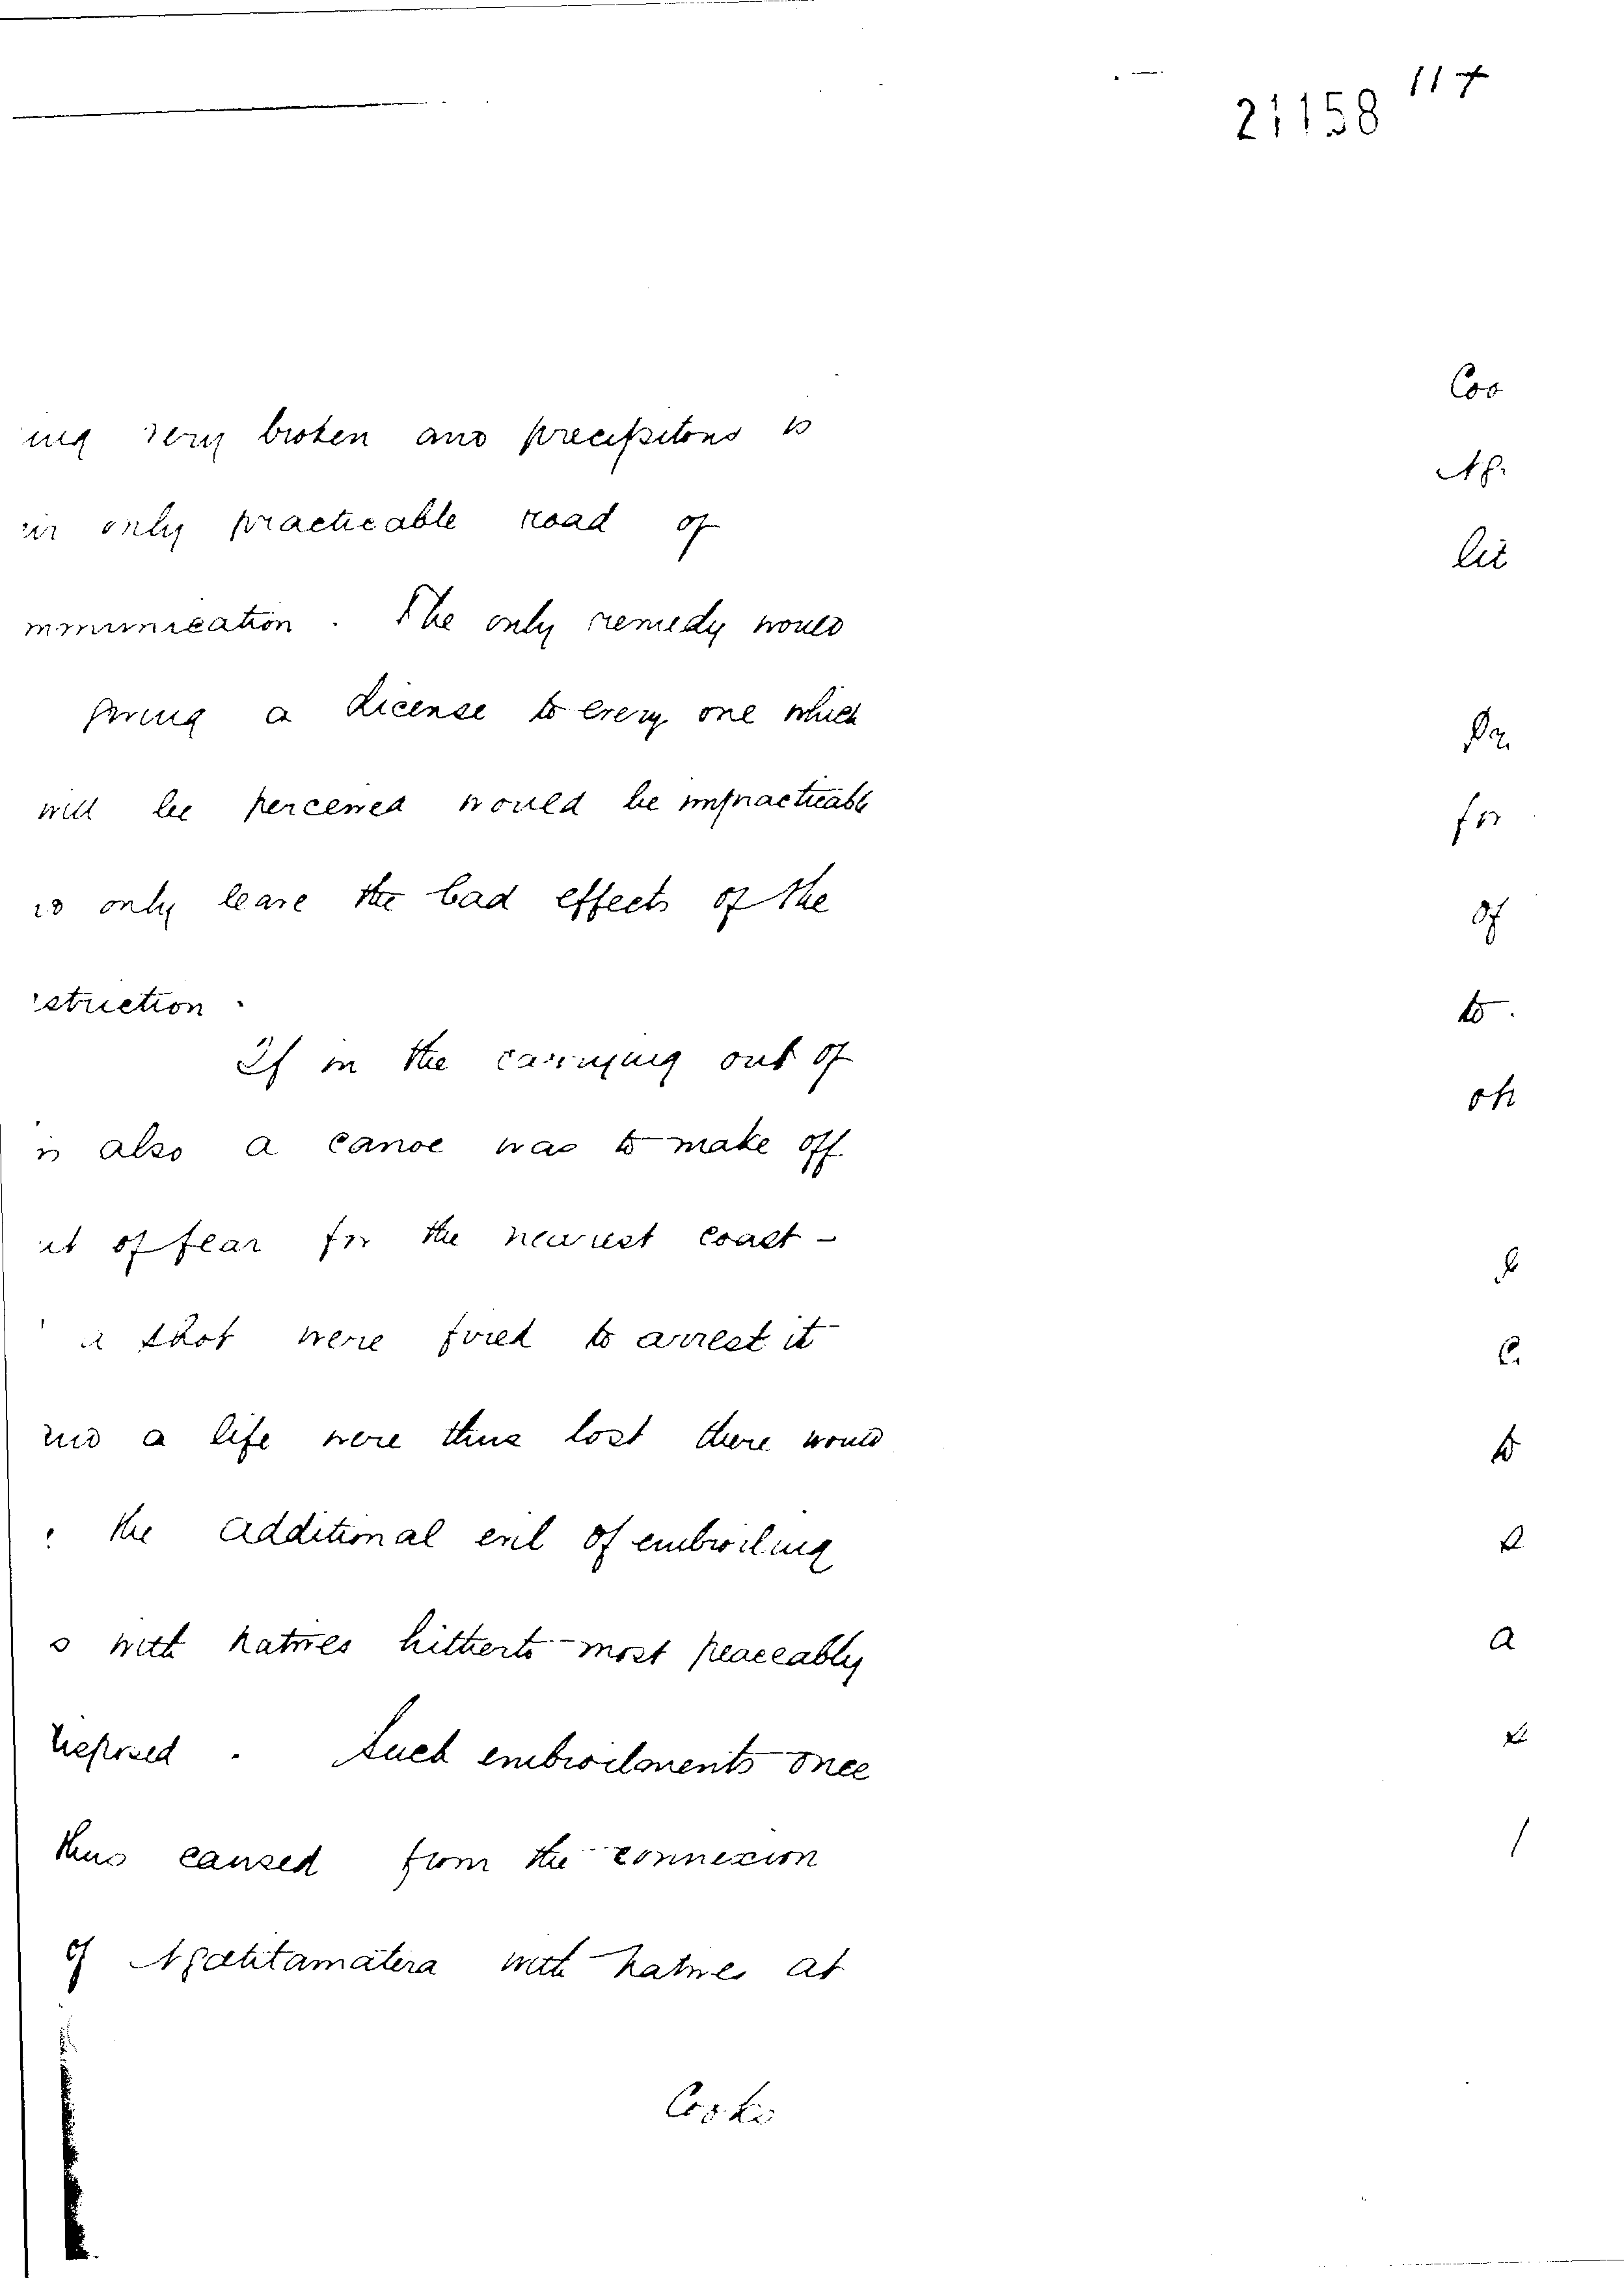 117
21158
ing very broken and precipitous is
only practicable road of
mmunication. The only remedy would
giving a License to every one which
will be perceived would be impracticable
only leave the bad effects of the
struction.
If in the carrying out of
is also a canoe was to make off
ut of fear for the nearest coast -
a shot were fired to arrest it
and a life were thus lost there would
the additional evil of embroiling
s with natives hitherto most peaceably
disposed. Such embroilments once
thus caused from the connexion
of Ngatitamatera with natives at
Cooks
Coo
Ng.
lit
Pr
for
of
to
on
to
a